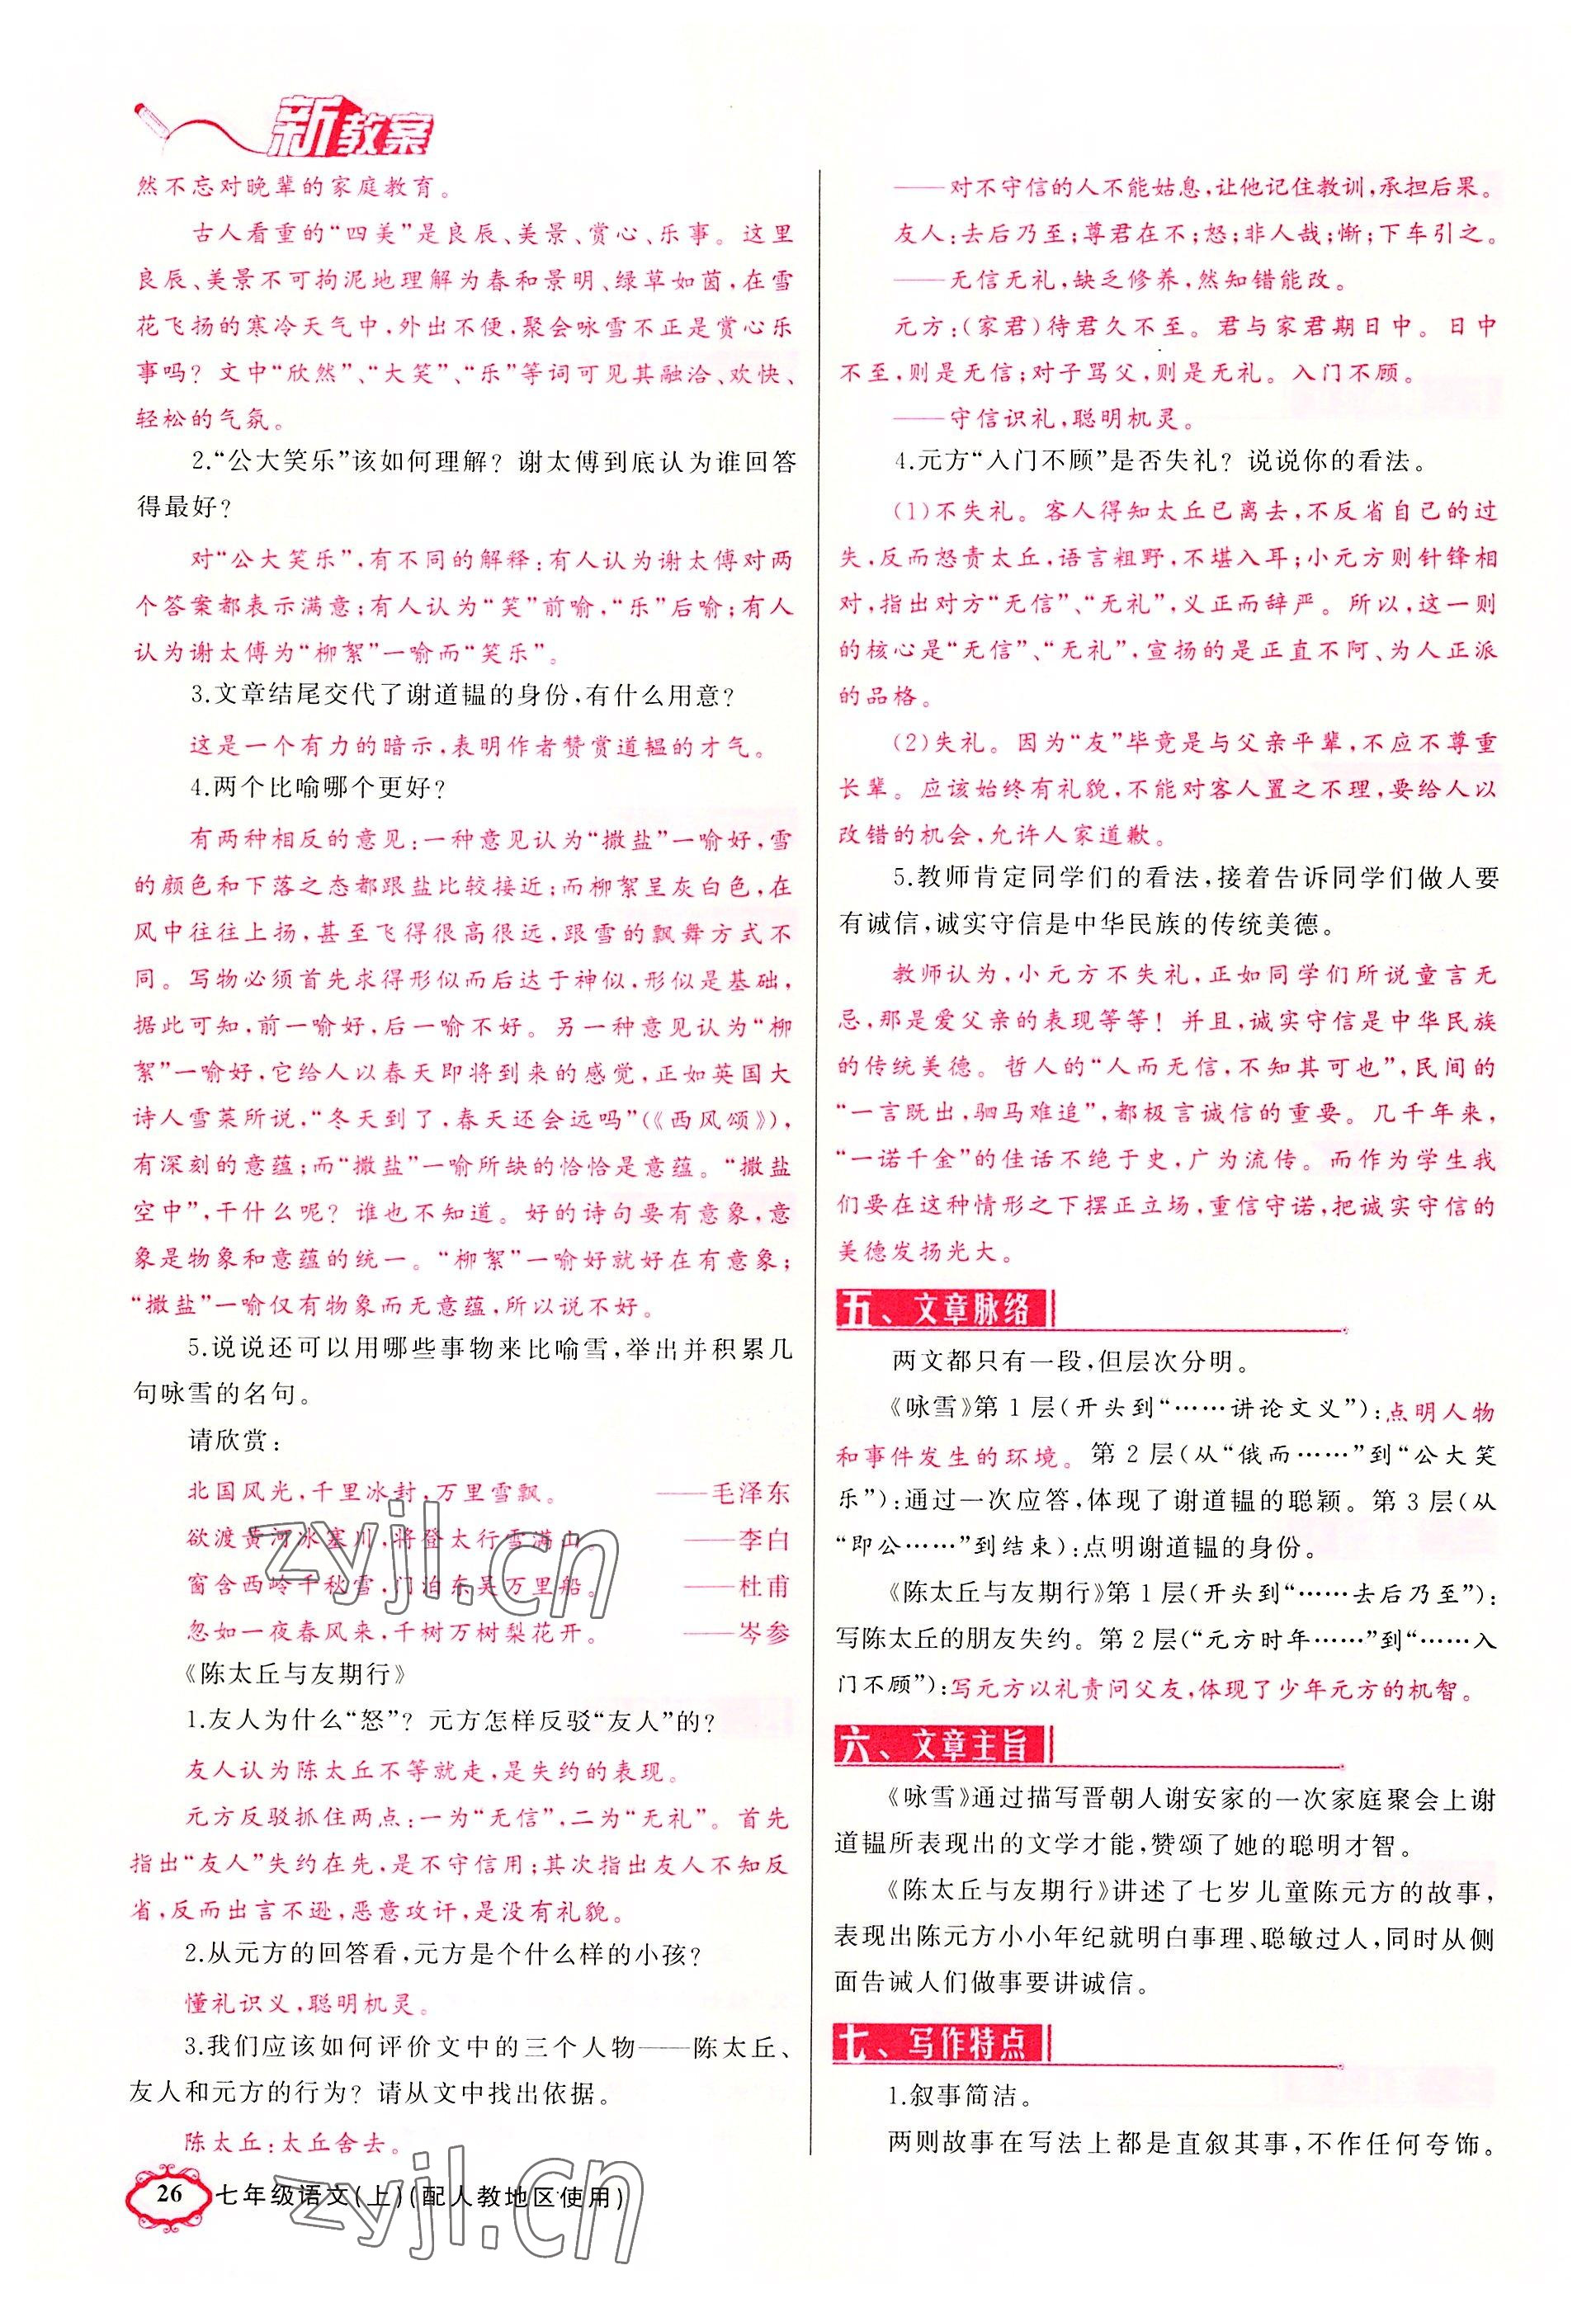 新教案
然不忘对晚辈的家庭教育。
古人看重的“四美”是良辰、美景、赏心、乐事。这里
良辰、美景不可拘泥地理解为春和景明、绿草如茵，在雪
花飞扬的寒冷天气中，外出不便，聚会咏雪不正是赏心乐
事吗？文中“欣然”、“大笑”、“乐”等词可见其融洽、欢快、
轻松的气氛。
2.“公大笑乐”该如何理解？谢太傅到底认为谁回答
得最好？
对“公大笑乐”，有不同的解释：有人认为谢太傅对两
个答案都表示满意；有人认为“笑”前喻，“乐”后喻；有人
认为谢太傅为“柳絮”一喻而“笑乐”。
3.文章结尾交代了谢道韫的身份，有什么用意？
这是一个有力的暗示，表明作者赞赏道韫的才气。
4.两个比喻哪个更好？
有两种相反的意见：一种意见认为“撒盐”一喻好，雪
的颜色和下落之态都跟盐比较接近；而柳絮呈灰白色，在
风中往往上扬，甚至飞得很高很远，跟雪的飘舞方式不
同。写物必须首先求得形似而后达于神似，形似是基础，
据此可知，前一喻好，后一喻不好。另一种意见认为“柳
絮”一喻好，它给人以春天即将到来的感觉，正如英国大
诗人雪莱所说，“冬天到了，春天还会远吗”（《西风颂》），
有深刻的意蕴；而“撒盐”一喻所缺的恰恰是意蕴。“撒盐
空中”，干什么呢？谁也不知道。好的诗句要有意象，意
象是物象和意蕴的统一。“柳絮”一喻好就好在有意象；
“撒盐”一喻仅有物象而无意蕴，所以说不好。
5.说说还可以用哪些事物来比喻雪，举出并积累几
句咏雪的名句。
请欣赏：
北国风光，千里冰封，万里雪飘。 ——毛泽东
欲渡黄河冰塞川，将登太行雪满山 ——李白
窗含西岭千秋雪，门泊东吴万里船。 ——杜甫
忽如一夜春风来，千树万树梨花开。 ——岑参
《陈太丘与友期行》
1.友人为什么“怒”？元方怎样反驳“友人”的？
友人认为陈太丘不等就走，是失约的表现。
元方反驳抓住两点：一为“无信”，二为“无礼”。首先
指出“友人”失约在先，是不守信用；其次指出友人不知反
省，反而出言不逊，恶意攻讦，是没有礼貌。
2.从元方的回答看，元方是个什么样的小孩？
懂礼识义，聪明机灵。
3.我们应该如何评价文中的三个人物——陈太丘、
友人和元方的行为？请从文中找出依据。
陈太丘：太丘舍去。
26 七年级语文（上）（配人教地区使用）
——对不守信的人不能姑息，让他记住教训，承担后果。
友人：去后乃至；尊君在不；怒；非人哉；惭；下车引之。
——无信无礼，缺乏修养，然知错能改。
元方：（家君）待君久不至。君与家君期日中。日中
不至，则是无信；对子骂父，则是无礼。入门不顾。
——守信识礼，聪明机灵。
4.元方“入门不顾”是否失礼？说说你的看法。
（1）不失礼。客人得知太丘已离去，不反省自己的过
失，反而怒责太丘，语言粗野，不堪入耳；小元方则针锋相
对，指出对方“无信”、“无礼”，义正而辞严。所以，这一则
的核心是“无信”、“无礼”，宣扬的是正直不阿、为人正派
的品格。
（2）失礼。因为“友”毕竟是与父亲平辈，不应不尊重
长辈。应该始终有礼貌，不能对客人置之不理，要给人以
改错的机会，允许人家道歉。
5.教师肯定同学们的看法，接着告诉同学们做人要
有诚信，诚实守信是中华民族的传统美德。
教师认为，小元方不失礼，正如同学们所说童言无
忌，那是爱父亲的表现等等！并且，诚实守信是中华民族
的传统美德。哲人的“人而无信，不知其可也”，民间的
“一言既出，驷马难追”，都极言诚信的重要。几千年来，
“一诺千金”的佳话不绝于史，广为流传。而作为学生我
们要在这种情形之下摆正立场，重信守诺，把诚实守信的
美德发扬光大。
五、文章脉络
两文都只有一段，但层次分明。
《咏雪》第1层（开头到“……讲论文义”）：点明人物
和事件发生的环境。第2层（从“俄而……”到“公大笑
乐”）：通过一次应答，体现了谢道韫的聪颖。第3层（从
“即公……”到结束）：点明谢道韫的身份。
《陈太丘与友期行》第1层（开头到“……去后乃至”）：
写陈太丘的朋友失约。第2层（“元方时年……”到“……入
门不顾”）：写元方以礼责问父友，体现了少年元方的机智。
六、文章主旨
《咏雪》通过描写晋朝人谢安家的一次家庭聚会上谢
道韫所表现出的文学才能，赞颂了她的聪明才智。
《陈太丘与友期行》讲述了七岁儿童陈元方的故事，
表现出陈元方小小年纪就明白事理、聪敏过人，同时从侧
面告诫人们做事要讲诚信。
七、写作特点
1.叙事简洁。
两则故事在写法上都是直叙其事，不作任何夸饰。
zyjl.cn
zyjl.cn